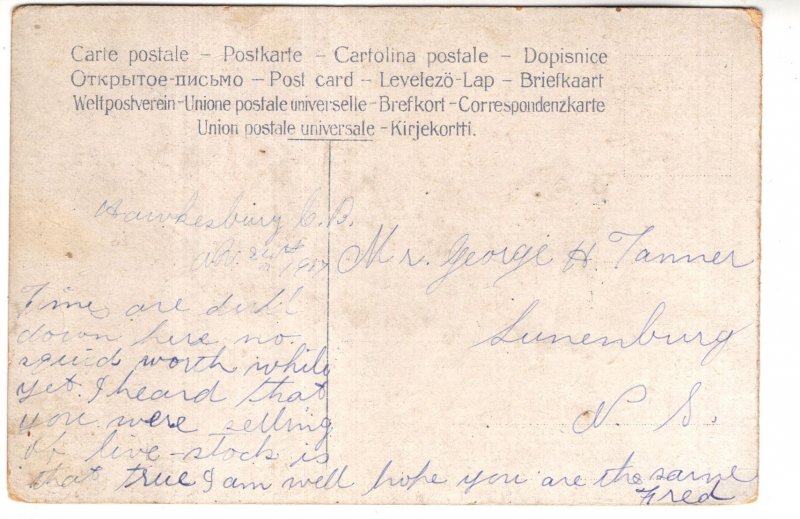 Carte postale – Postkarte – Cartolina postale – Dopisnice
Открытое-письмо – Post card – Levelezö-Lap – Briefkaart
Weltpostverein – Unione postale universelle – Brefkort – Correspondenzkarte
Union postale universale – Kirjekortti.
Hawkesbury C. B.
1917
Mr. George H Tanner
Lunenburg
N S.
Times are dull
down here no
squid worth while
yet. I heard that
you were selling
of live-stock is
that true I am well hope you are the same
Fred